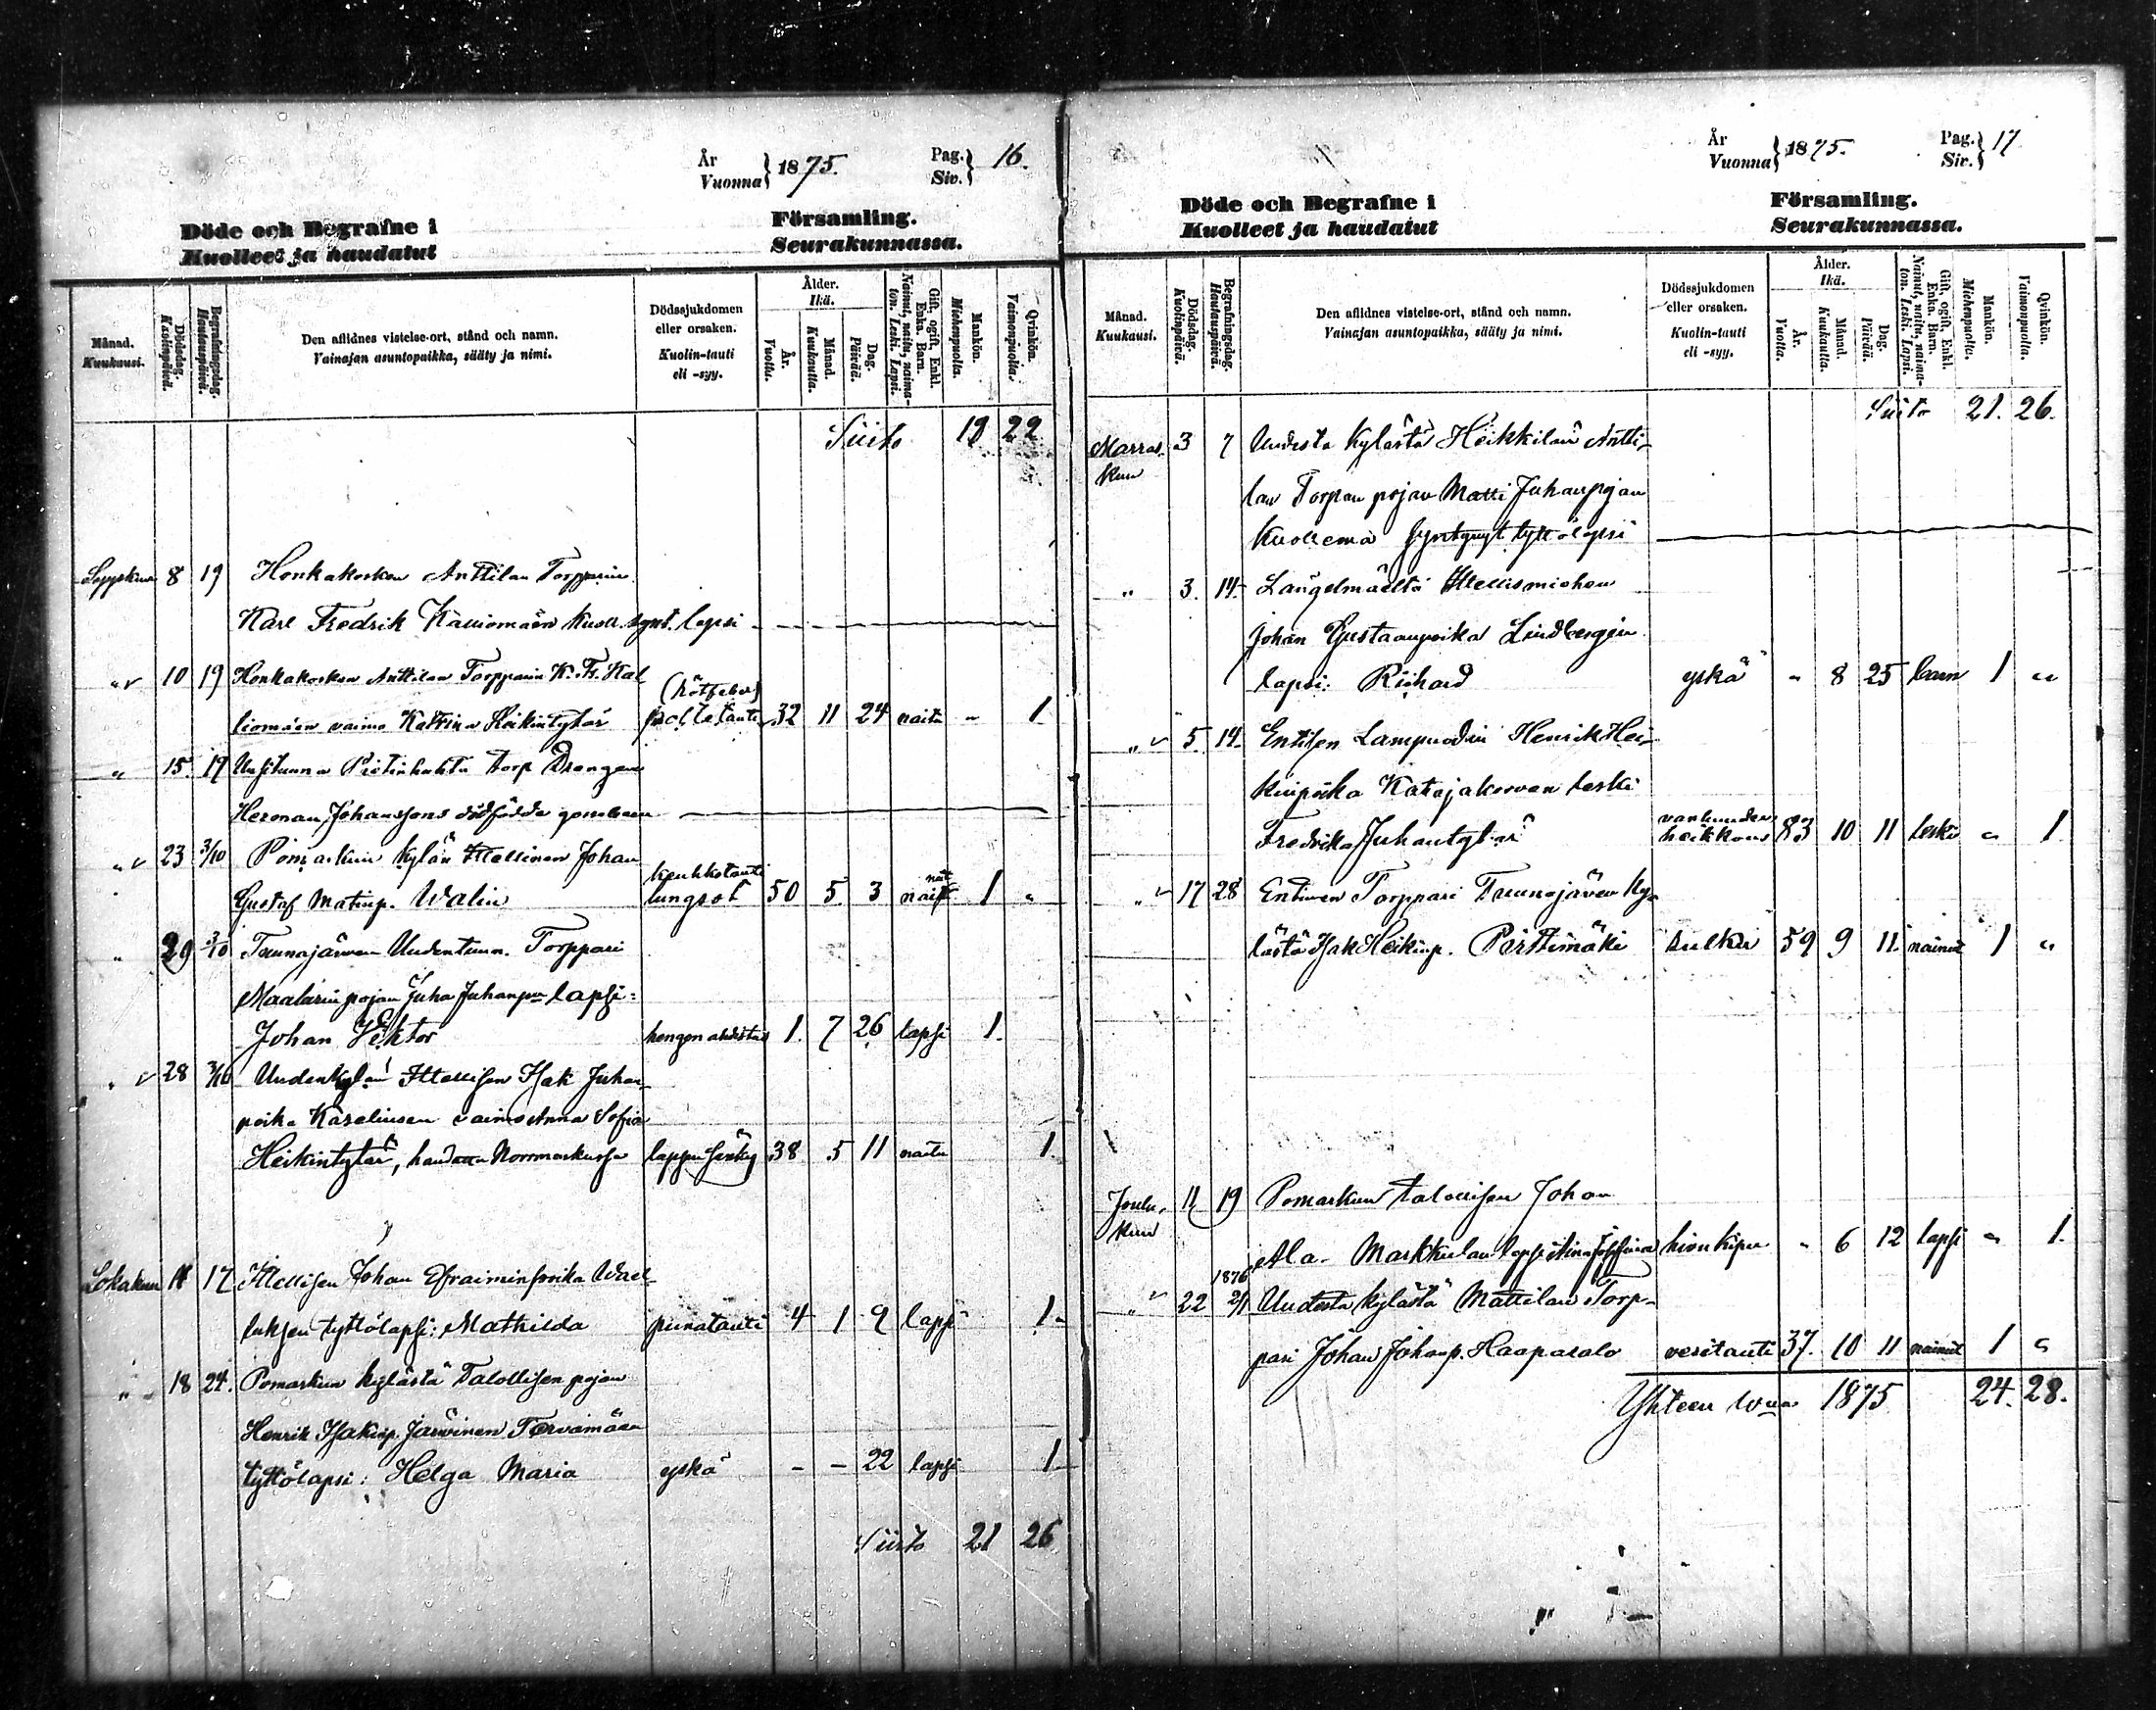 År
Vuonna } 1875.
Pag.
Siv. } 16.
Döde och Begrafne i Församling.
Kuolleet ja haudatut Seurakunnassa.
Månad. Kuukausi.
Dödsdag. Kuolinpäivä.
Begrafningsdag. Hautauspäivä.
Den aflidnes vistelse-ort, stånd och namn.
Vainajan asuntopaikka, sääty ja nimi.
Dödssjukdomen eller orsaken.
Kuolin-tauti eli -syy.
Ålder. Ikä.
År. Vuotta.
Månad. Kuukautta.
Dag. Päivää.
Gift, ogift, Enkl. Enka. Barn.
Nainut, naitu, naimaton. Leski. Lapsi.
Mankön. Miehenpuolta.
Qvinkön. Vaimonpuolta.
Siirto 19 22
Syyskuu 8 19 Honkakosken Anttilan Torpparin
Karl Fredrik Kalliomäen kuoll. synt. lapsi
" 10 19 Honkakosken Anttilan Torpparin K. Fr. Kal
liomäen vaimo Katrina Heikintytär (Rötfeber) 32 11 24 naitu " 1
" 15. 19 Uusitunna torp Drengen
Herman Johanssons dödfödde
" 23 3/10 Pomarkun kylän Itellinen Johan
Gustaf Matinp. Walin keuhkotauti lungsot 50 5 3 1 "
" 29 3/10 Tuunajärven Uudentunn. Torppari
Maalarin pojan Juha Juhanpn lapsi:
Johan Viktor hengen ahdistus 1. 7 26 lapsi 1.
" 28 3/10 Uudenkylän Itellisen Isak Juhan
poika Kareliusen vaimo Anna Sofia
Heikintytär, haudattu Norrmarkussa 38 5 11 naitu 1.
Lokakuu 11 17 Itellisen Johan Efraiminpoika Wael
luksen tyttölapsi: Mathilda punatauti 4 1 9 lapsi 1
" 18 24. Pomarkun kylästä Talollisen pojan
Henrik Isakinp. Järwinen Tervamäen
tyttölapsi: Helga Maria yskä - - 22 lapsi 1
Siirto 21 26
År
Vuonna } 1875.
Pag.
Siv. } 17
Döde och Begrafne i Församling.
Kuolleet ja haudatut Seurakunnassa.
Månad. Kuukausi.
Dödsdag. Kuolinpäivä.
Begrafningsdag. Hautauspäivä.
Den aflidnes vistelse-ort, stånd och namn.
Vainajan asuntopaikka, sääty ja nimi.
Dödssjukdomen eller orsaken.
Kuolin-tauti eli -syy.
Ålder. Ikä.
År. Vuotta.
Månad. Kuukautta.
Dag. Päivää.
Gift, ogift, Enkl. Enka. Barn.
Nainut, naitu, naimaton. Leski. Lapsi.
Mankön. Miehenpuolta.
Qvinkön. Vaimonpuolta.
Siirto 21. 26.
Marras- 3 7 Uudesta kylästä Heikkilän Antti-
kuu lan Torpan pojan Matti Juhanpojan
kuollema syntynyt tyttölapsi
" 3. 14. Längelmäeltä Itellismiehen
Johan Gustaanpoika Lindbergin
lapsi: Richard yskä " 8 25 barn 1 "
" 5. 14. Entisen Lampuodin Henrik Hei-
kinpoika Katajakorven leski
Fredrika Juhantytär vanhuuden heikkous 83 10 11 leski " 1.
" 17 28 Entinen Torppari Tuunajärven ky-
lästä Isak Heikinp. Pärttimäki kulku 59 9 11. nainut 1 "
Joulu- 11 19 Pomarkun talollisen Johan
kuu Ala- Markkulan lapsi " 6 12 lapsi " 1.
" 22 1876 2/1 Uudesta kylästä Mattilan Torp-
pari Johan Johanp. Haaparalo veritauti 37. 10 11 nainut 1 "
Yhteen wnna 1875 24. 28.